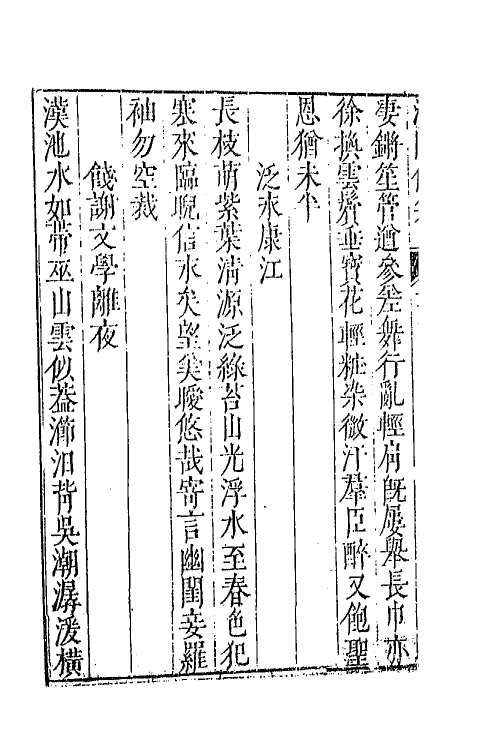 淒鏘笙管遒參差舞行亂輕肩旣屢舉長巾亦
徐換雲鬢垂寶花輕粧染微汗羣臣醉又飽聖
恩猶未半
泛永康江
長枝萌紫葉清源泛綠苔山光浮水至春色犯
寒來臨睨信永矣望美曖悠哉寄言幽閨妾羅
袖勿空裁
餞謝文學離夜
漢池水如帶巫山雲似葢瀄汨背吳潮潺湲橫